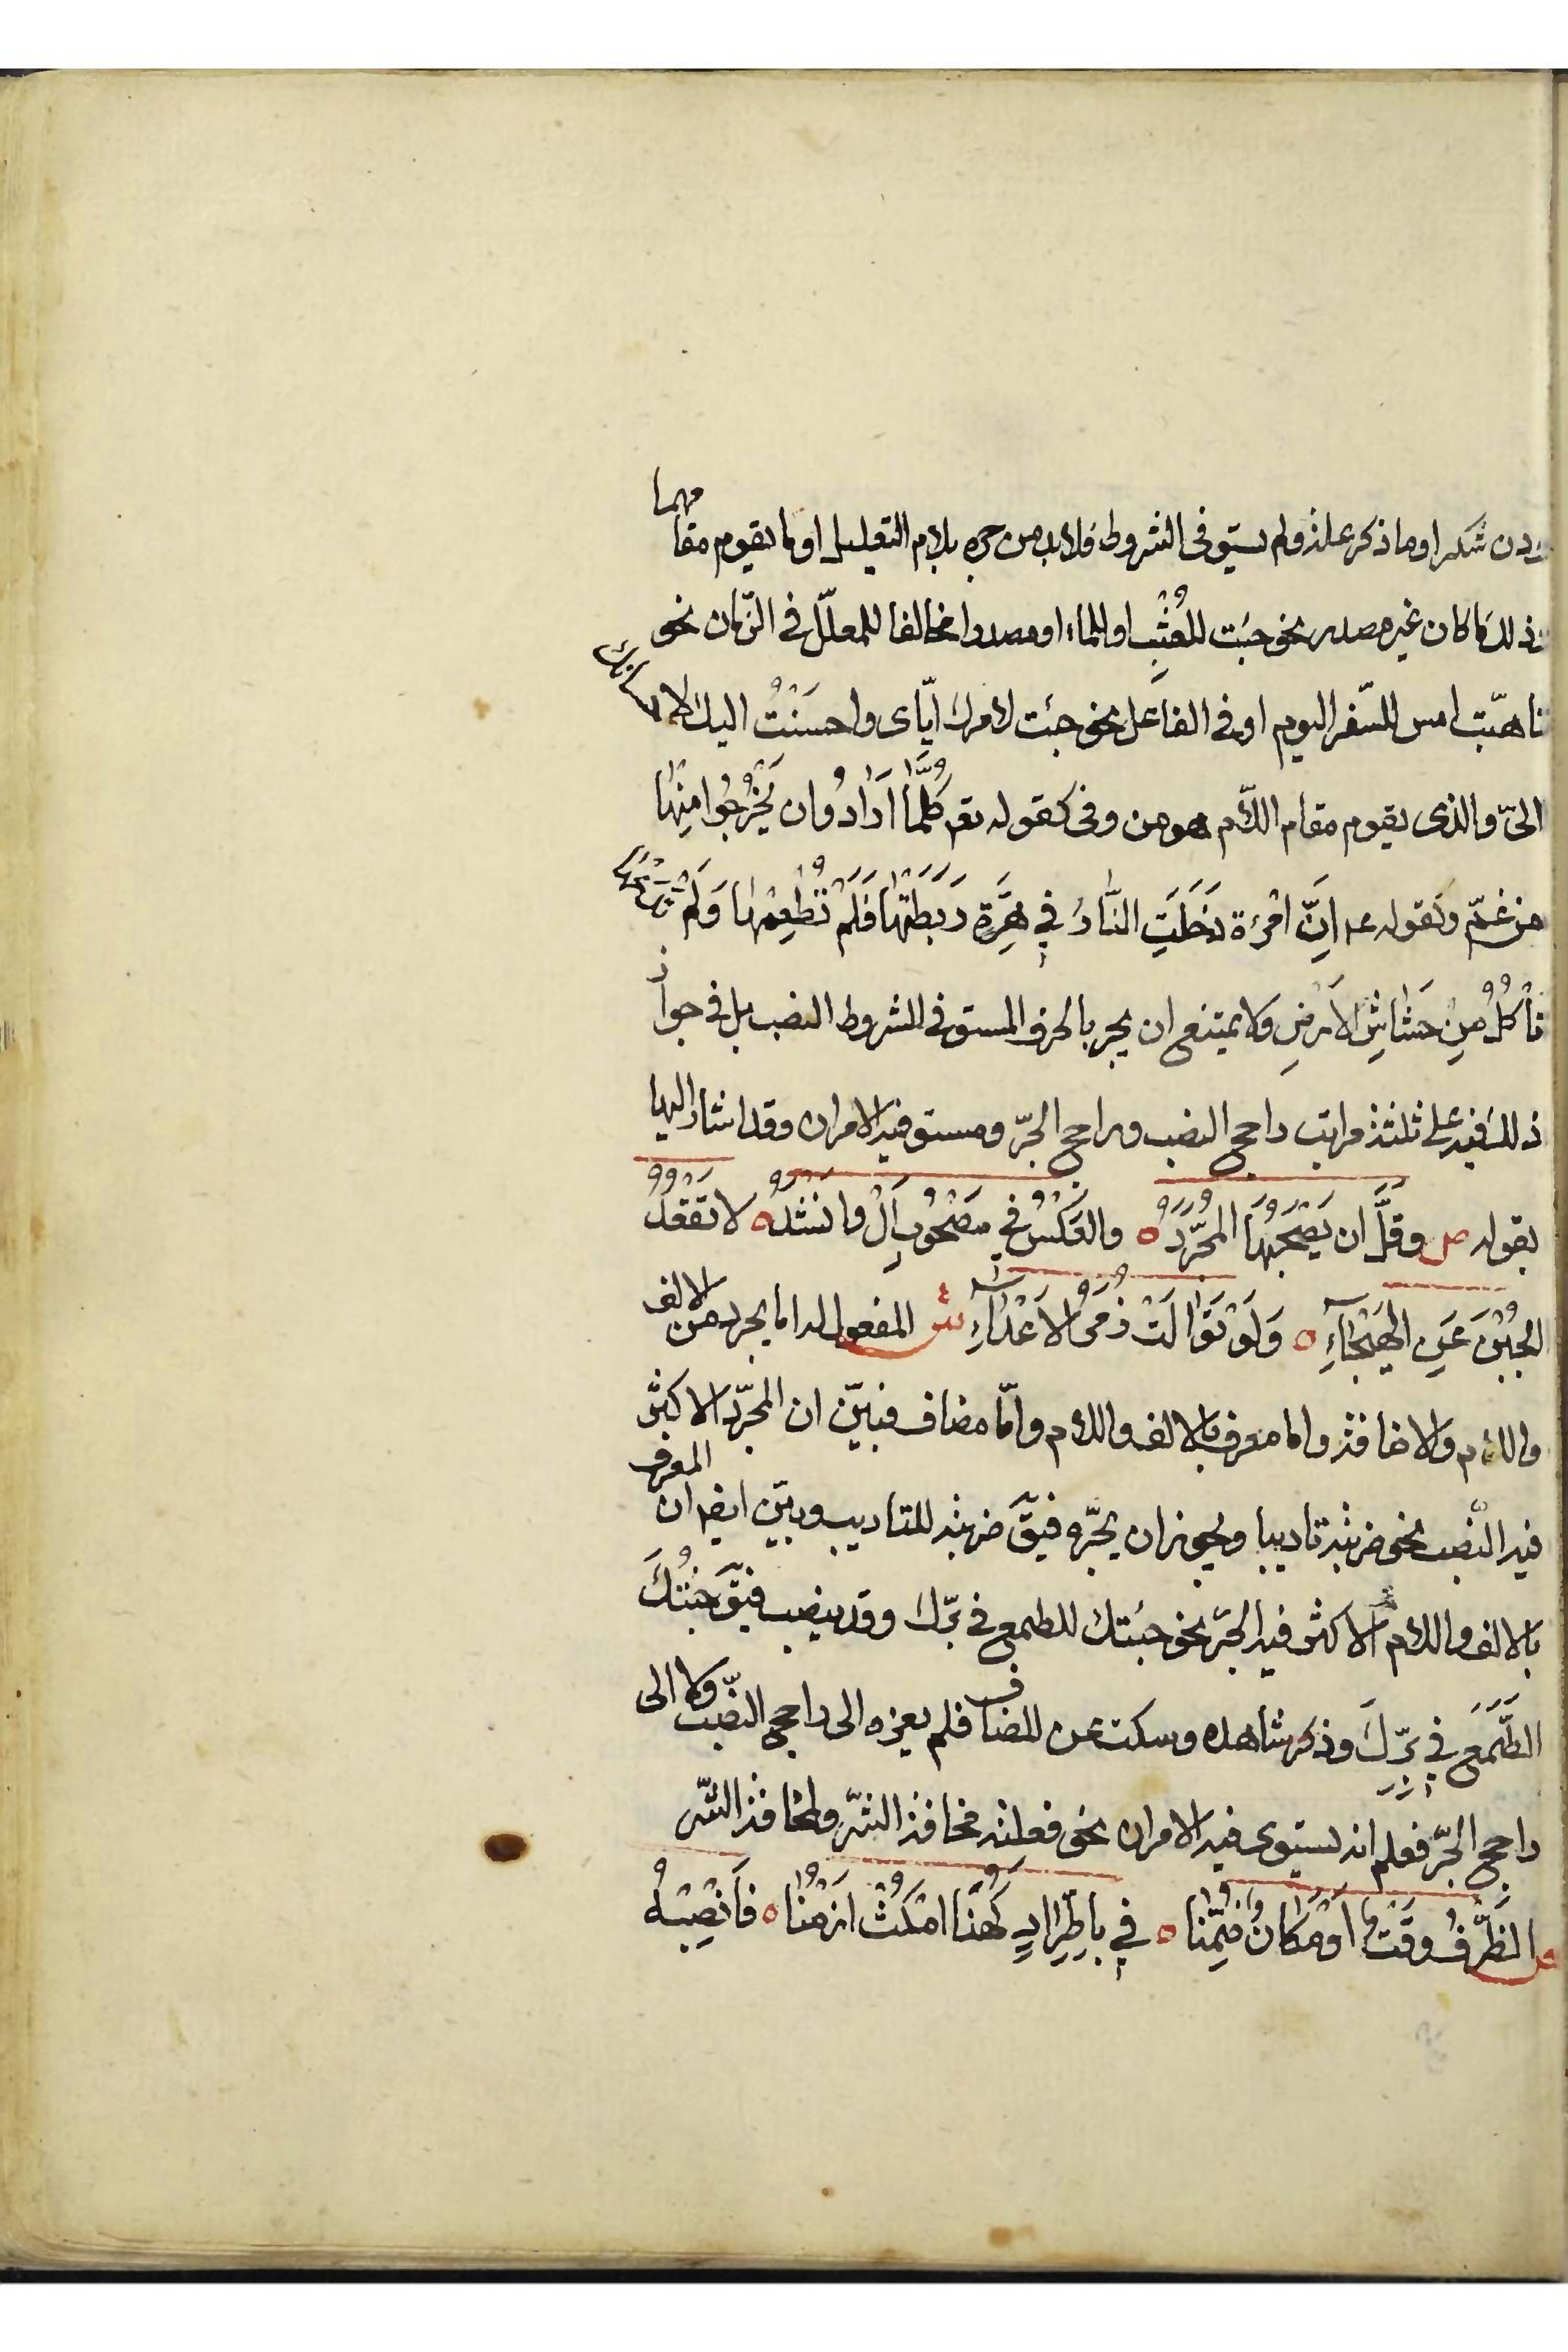 دن شكرا وما ذكر علة ولم يستوفى الشروط فلابد من جره بلام التعليل او ما يقوم مقامها
ذلك ما كان غير مصدر نحو جئت للعُشْبِ او للماء او مصدرا مخالفا للمعلّل فى الزّمان نحو
تاهّبت امس للسّفر اليوم او فى الفاعل نحو جئت لامرك ايّاى واحسَنْتُ اليك لاحسانك
الىّ والذى يقوم مقام اللام هو من وفى كقوله تع كُلَّمٰا اَرٰادُوا ان يَخْرُجُوا مِنْهٰا
من غمّ وكقوله عم اِنَّ امْرَءة دَخَلَتِ النّٰارَ فِي هِرَّةٍ رَبَطَتْهٰا فَلَمْ تُطْعِمْهٰا وَلَمْ تَتْرُكْهٰا
تأكُلُ مِنْ خَشٰاشِ الاَرْضِ ولا يمتنع ان يجر بالحرف المستوفى لشروط النصب بل فى جواز
ذلك فيه على ثلثة مراتب راجح النصب وراجح الجرّ ومستو فيه الامران وقد اشار اليها
بقوله ص وقَلَّ ان يَصْحَبَهٰا المُجَرَّدُ ه والعَكْسُ فِي مَصْحُوبِ اَلْ وانشَدُوا ه لا اَقْعُدُ
الجُبْنَ عَنِ الهَيْجٰآءِ ه وَلَوْ تَوٰالَتْ زُمَرُ الاَعْدٰآءِ ش المفعول له اما مجرد من الالف
واللام والاضافة واما معرف بالالف واللام وامّا مضاف فبيّن ان المجرّد الاكثر
فيه النّصب نحو ضربته تاديبا ويجوز ان يجرّ فيقَ ضربته للتاديب وبيّن ايض ان المعرف
بالالف واللام الاكثر فيه الجرّ نحو جئتك للطمع فى برّك وقد ينصب فيقَ جئتُكَ
الطَّمَعَ فِي بِرِّكَ وذكر شاهده وسكت عن المضاف فلم يعزه الى راجح النصب ولا الى
راجح الجرّ فعلم انه يستوى فيه الامران نحو فعلته مخافة الشّر ولمخافة الشّر
ص الظَّرْفُ وَقْتٌ اَوْ مَكٰانٌ ضُمِّنٰا ه فِي بِاطِّرٰادٍ كَهُنَا امْكُثْ اَزْمُنٰا ه فَانْصِبْهُ